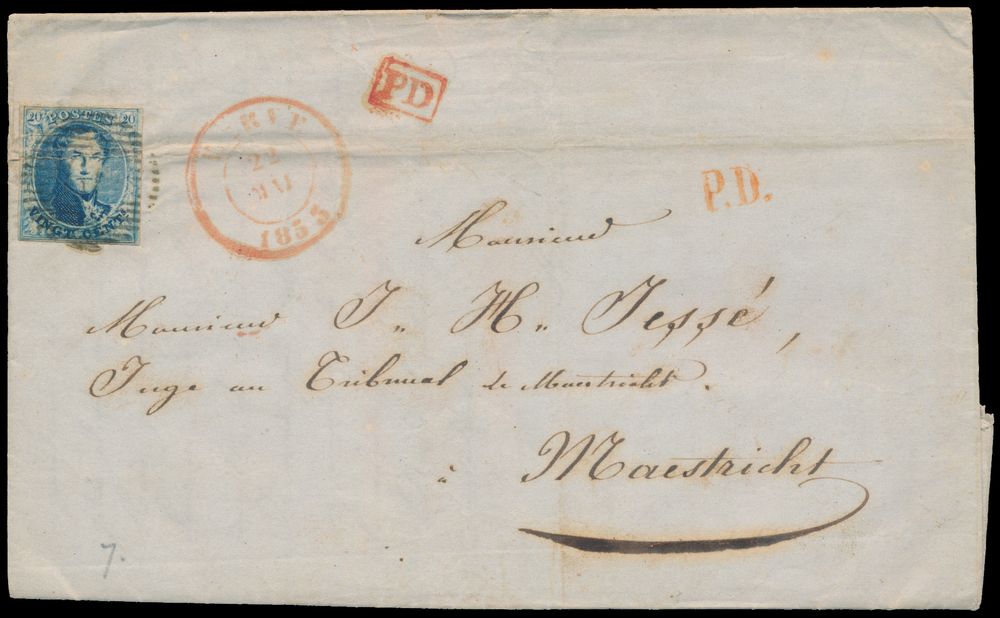 20 POSTES 20
VINGT CENTS
PD
22
MAI
1853
P.D.
Monsieur
Monsieur J. H. Jessé,
Juge au Tribunal de Maestricht.
à Maestricht
7.